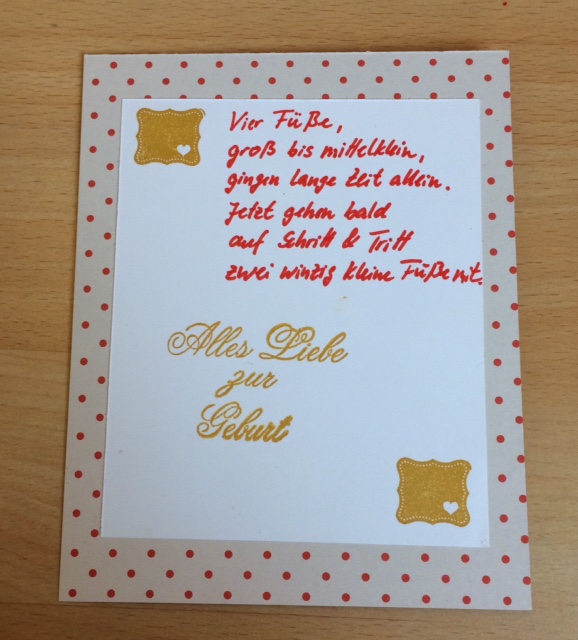 Vier Füße,
groß bis mittelklein,
gingen lange Zeit allein.
Jetzt gehen bald
auf Schritt & Tritt
zwei winzig kleine Füße mit.
Alles Liebe
zur
Geburt